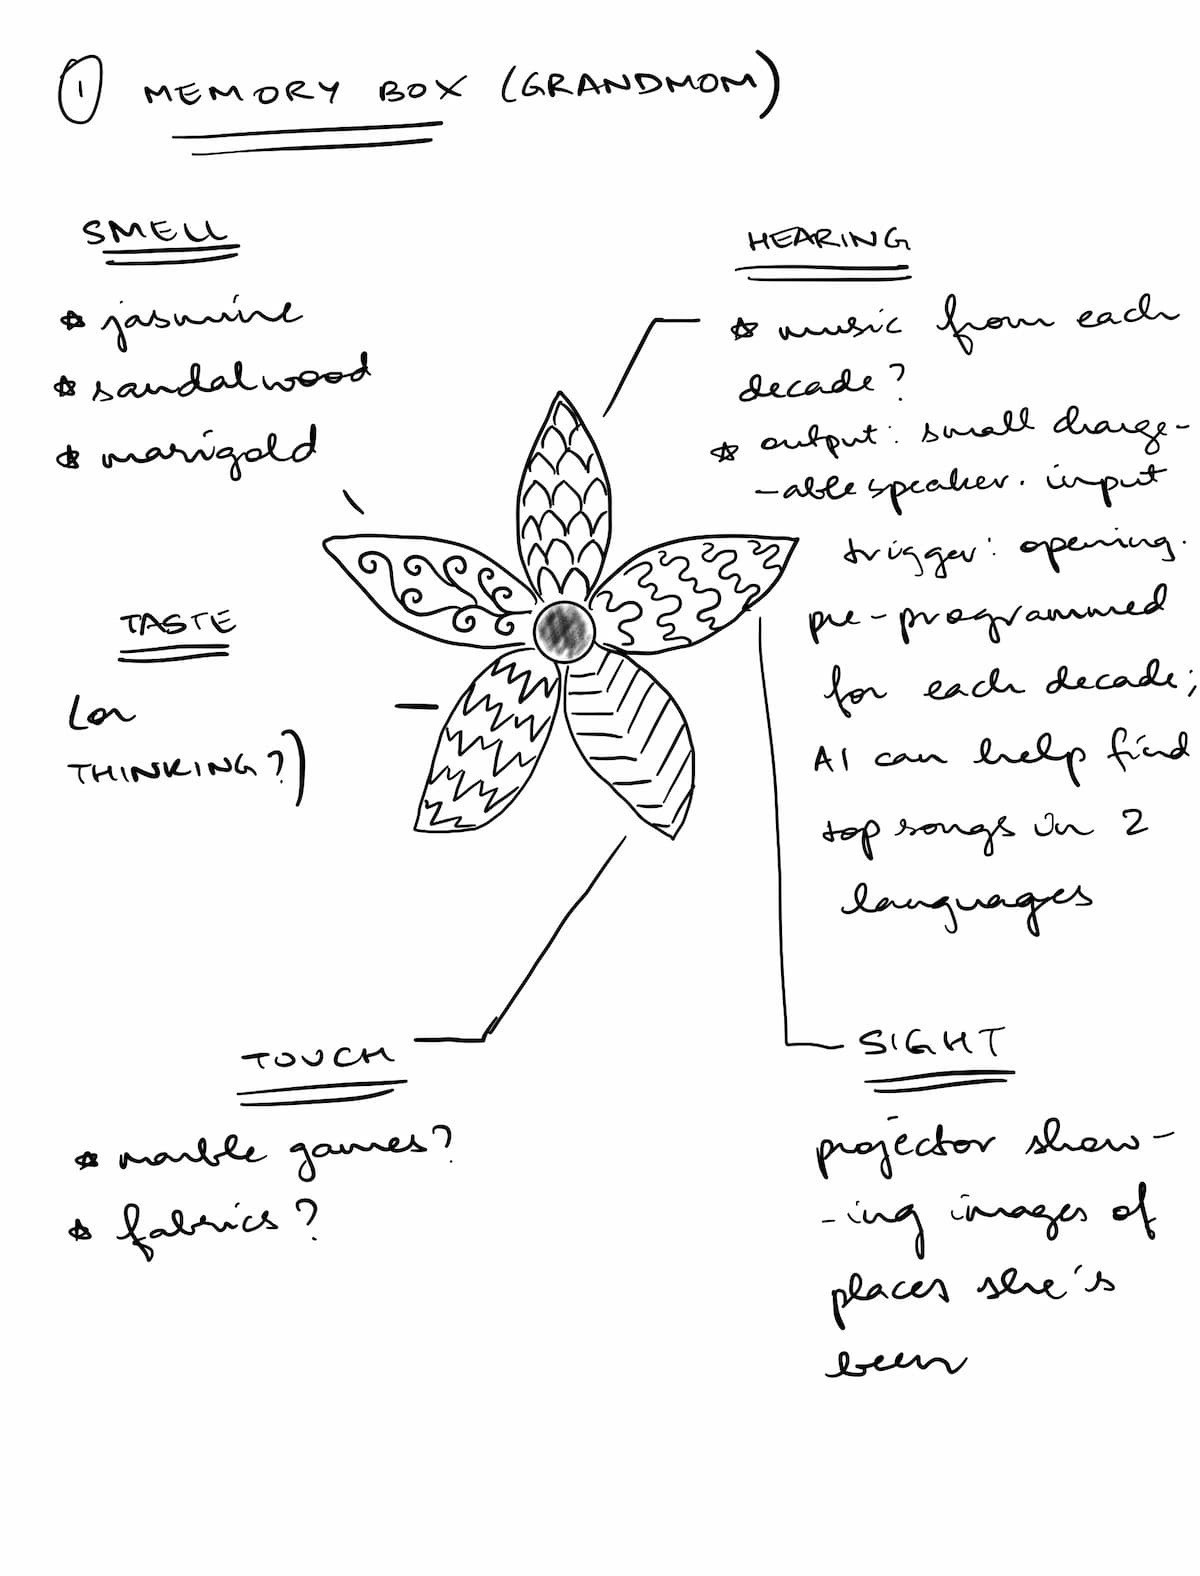 1 MEMORY BOX (GRANDMOM)
SMELL
☆ jasmine
☆ sandalwood
☆ marigold
TASTE
(or
THINKING?)
HEARING
☆ music from each
decade?
☆ output: small charge-
-able speaker. input
trigger: opening.
pre-programmed
for each decade;
AI can help find
top songs in 2
languages
TOUCH
☆ marble games?
☆ fabrics?
SIGHT
projector show-
-ing images of
places she's
been